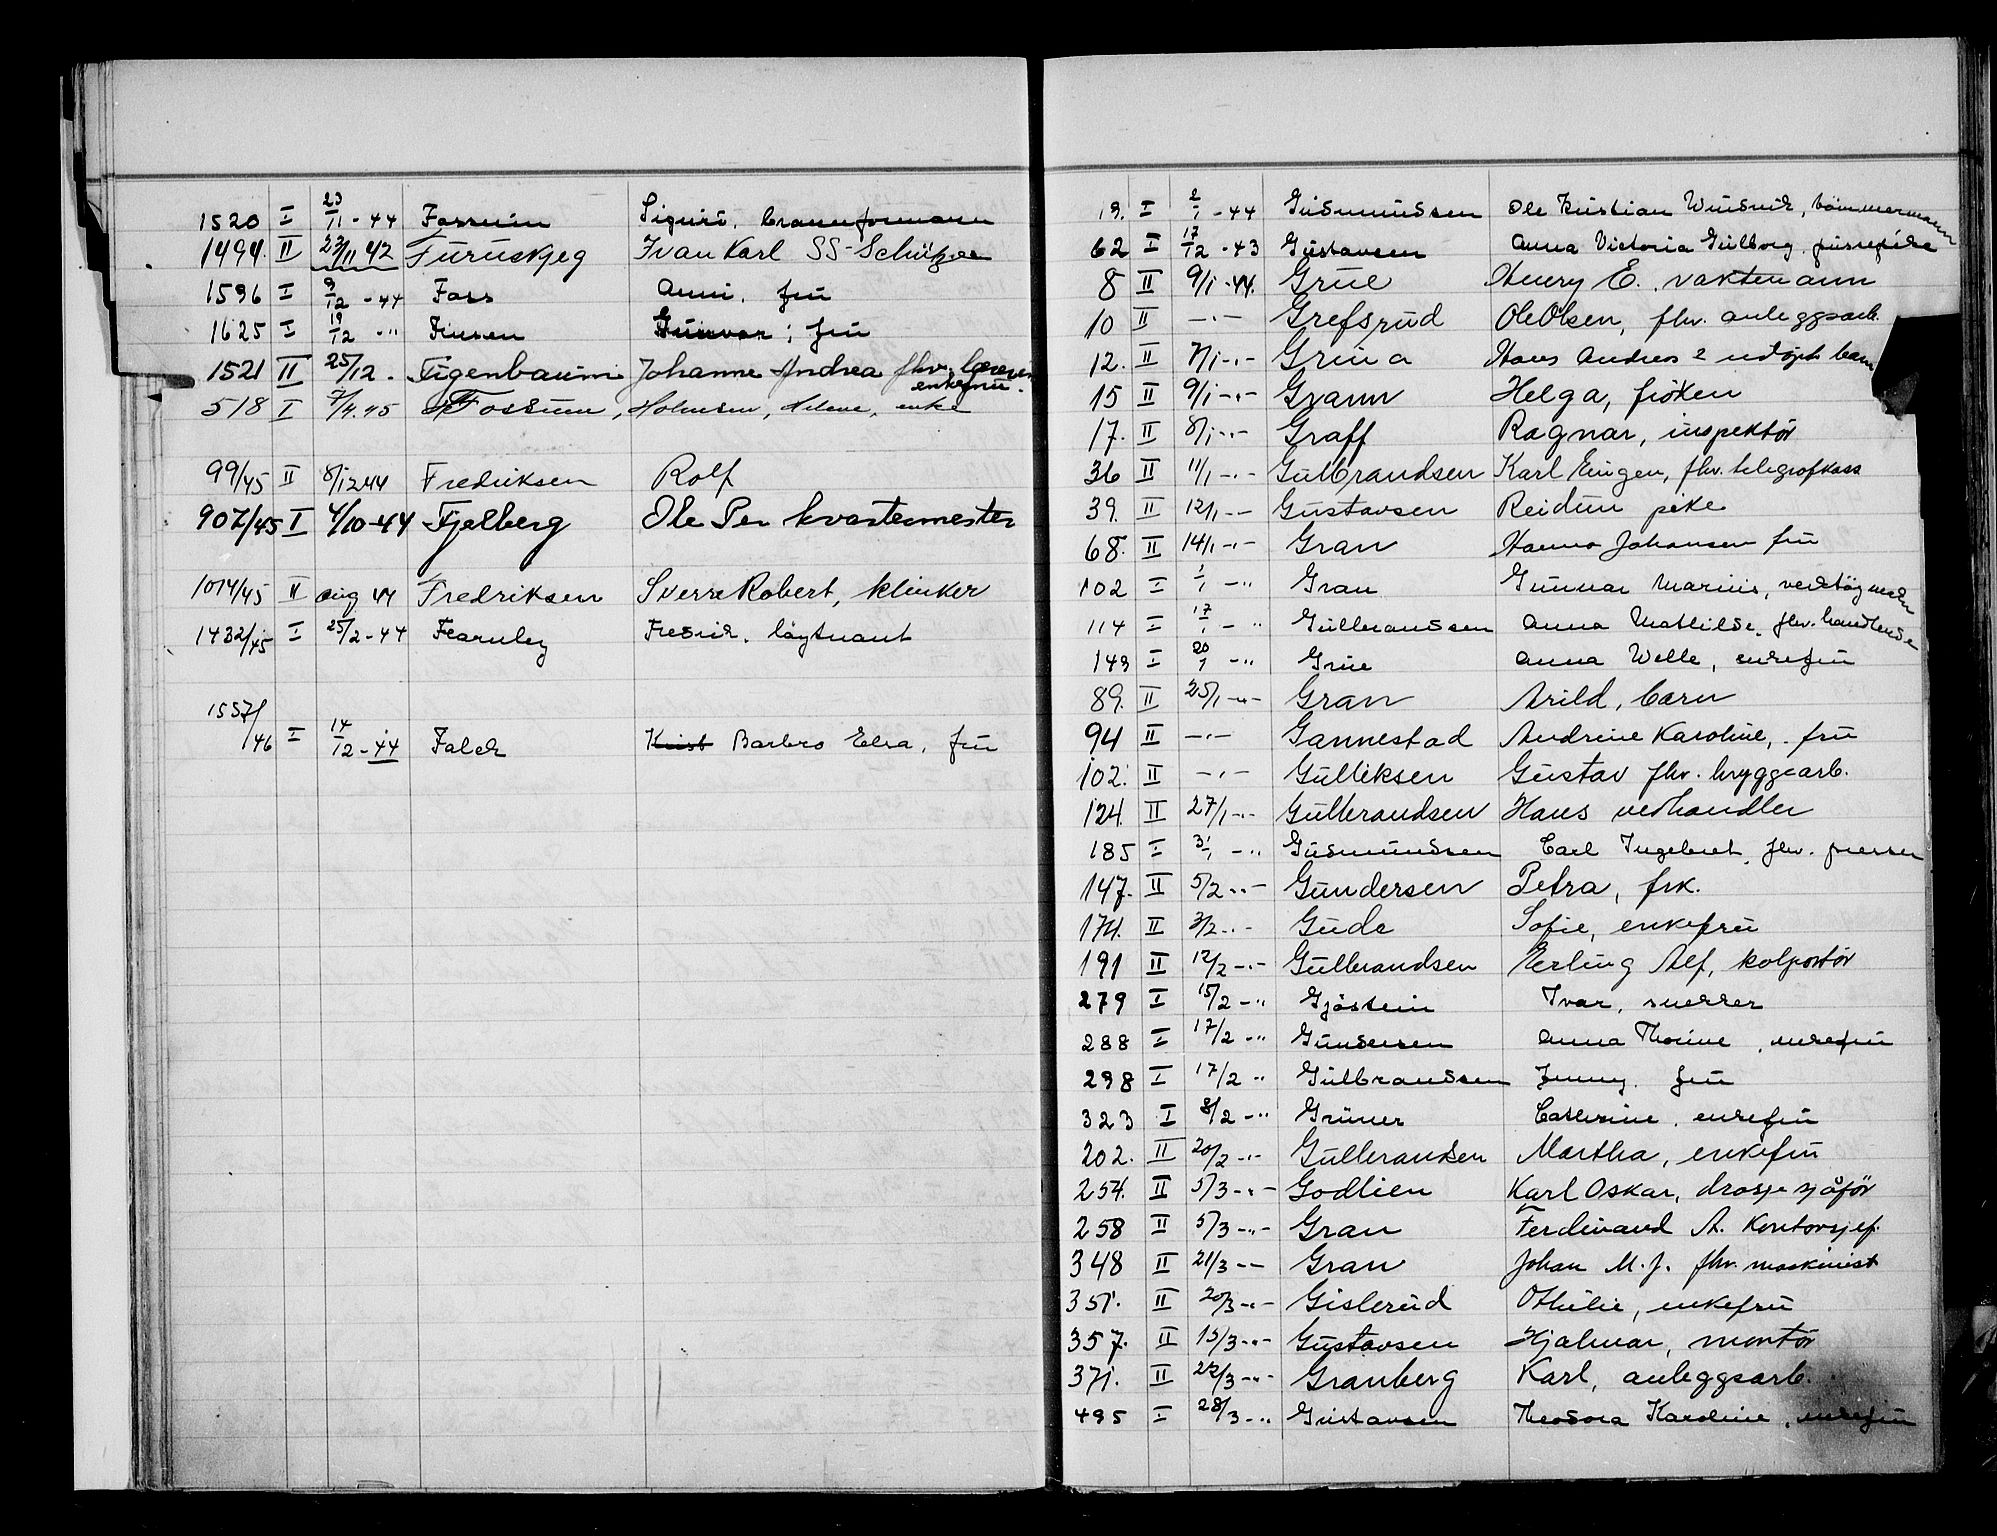 1520 I 23/11-44 Fossum Sigurd, brannformann
1494. II 23/11 42 Furuskjeg Ivan Karl SS-Schütze
1596 I 9/12-44 Foss Anni, fru
1625 I 19/12 -" Finsen Gunvor, fru
1521 II 25/12 - Figenbaum Johanne Andrea fhv. lærerin
enkefru.
518 I 7/4.45 Fossum, Holmsen, Helene, enke
99/45 II 8/12 44 Fredriksen Rolf
907/45 I 4/10-44 Fjelberg Ole Per kvartermester
1014/45 II aug 44 Fredriksen Sverre Robert, klinker
1432/45 I 25/2-44 Fearnley Fredrik, løytnant
1557/46 I 14/12-44 Falck Barbro Elsa, fru
19. I 2/1-44 Gudmundsen Ole Kristian Wudrik, tømmermann
62 I 17/12-43 Gustavsen Anna Victoria Gulborg, husrepike
8 II 9/1-44. Grue Henry E. vaktmann
10 II -"- Grefsrud Ole Olsen, fhv. anleggsarb.
12. II 7/1-"- Grina Hans Andres 2 udøpt barn
15 II 9/1-"- Grann Helga, frøken
17. II 8/1-"- Graff Ragnar, inspektør
36 II 11/1-"- Gulbrandsen Karl Eugen, fhv. telegrafkass
39. II 12/1-"- Gustavsen Reidun pike
68. II 14/1-"- Gran Hanna Johansen fru
102 I 1/1 -" Gran Gunnar Marius, verktøymaker
114 I 17/1 -" Gulbrandsen Anna Mathilde, fhv. handlende
149 I 20/1 -" Grue Anna Welle, enkefru
89. II 25/1-"- Gran Arild, barn
94 II -"- Gannestad Andrine Karoline, fru
102. II -"- Gulliksen Gustav fhv. bryggearb.
124. II 27/1-"- Gulbrandsen Hans vedhandler
185 I 31/1 -" Gudmundsen Carl Ingebret, fhv. presser
147. II 5/2 -"- Gundersen Petra, frk.
174. II 3/2-"- Gude Sofie, enkefru
191 II 12/2-"- Gulbrandsen Erling Alf, kolportør
279 I 15/2 -" Gjøstein Ivar, snekker
288 I 17/2 -" Gundersen Anna Thorine, enkefru
298 I 17/2 -" Gulbrandsen Jenny, fru
323 I 8/2 -" Grüner Catherine, enkefru
202. II 20/2 -"- Gulbrandsen Martha, enkefru
254. II 5/3-"- Godlien Karl Oskar, drosjesjåfør
258 II 5/3-"- Gran Ferdinand A. Kontorsjef.
348 II 21/3-"- Gran Johan M. J. fhv. maskinist
351. II 20/3-"- Gislerud Othilie, enkefru
357. II 15/3-"- Gustavsen Hjalmar, montør
371. II 22/3-"- Granberg Karl, anleggsarb.
495 I 28/3 -" Gustavsen Theodora Karoline, enkefru